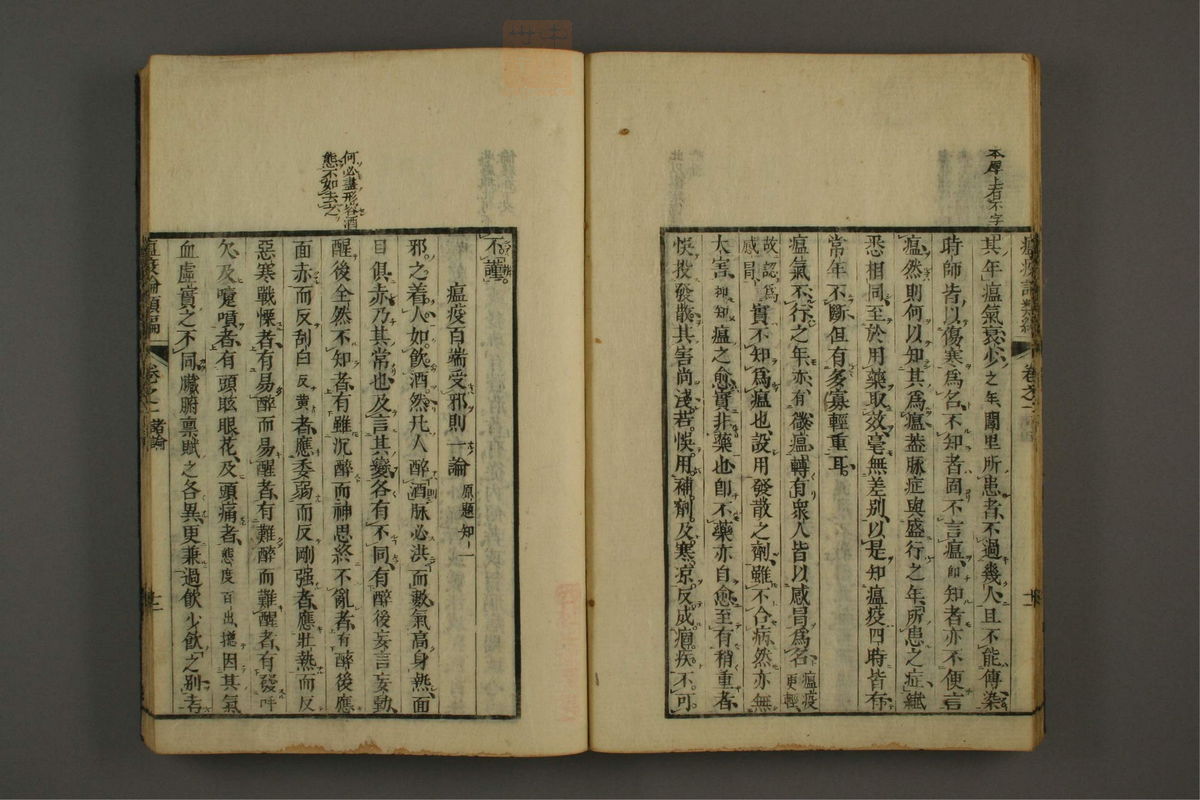 本厚上有不字
其年瘟氣衰少之年閭里所患者不過幾人且不能傳染
時師皆以傷寒爲名不知者固不言瘟卽知者亦不便言
瘟然則何以知其爲瘟蓋脉症與盛行之年所患之症纖
悉相同至於用藥取效毫無差別以是知瘟疫四時皆有
常年不斷但有多寡輕重耳
瘟氣不行之年亦有微瘟轉有衆人皆以感冒爲名瘟疫更輕
故認爲感冒實不知爲瘟也設用發散之劑雖不合病然亦無
大害瘟之愈實非藥也卽不藥亦自愈至有稍重者
悞投發散其害尚淺若悞用補劑及寒涼反成痼疾不可
不謹
瘟疫百端受邪則一論 原題知一
邪之着人如飲酒然凡人醉酒脉必洪而數氣高身熱面
目俱赤乃其常也及言其變各有不同有醉後妄言妄動
醒後全然不知者有雖沉醉而神思終不亂者有醉後應
面赤而反刮白反黄者應委弱而反剛强者應壯熱而反
惡寒戰慄者有易醉而易醒者有難醉而難醒者有發呼
欠及嚏噴者有頭眩眼花及頭痛者態度百出總因其氣
血虛實之不同臟腑禀賦之各異更兼過飲少飲之别考
瘟疫論類編 卷之一 諸論 十二
何必盡形容酒
態不如去之